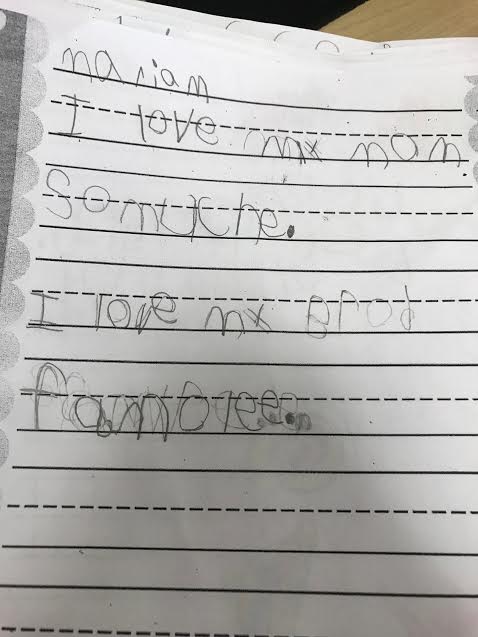 mariam
I love mx mom.
somuche.
I love mx Brod
famoleee.